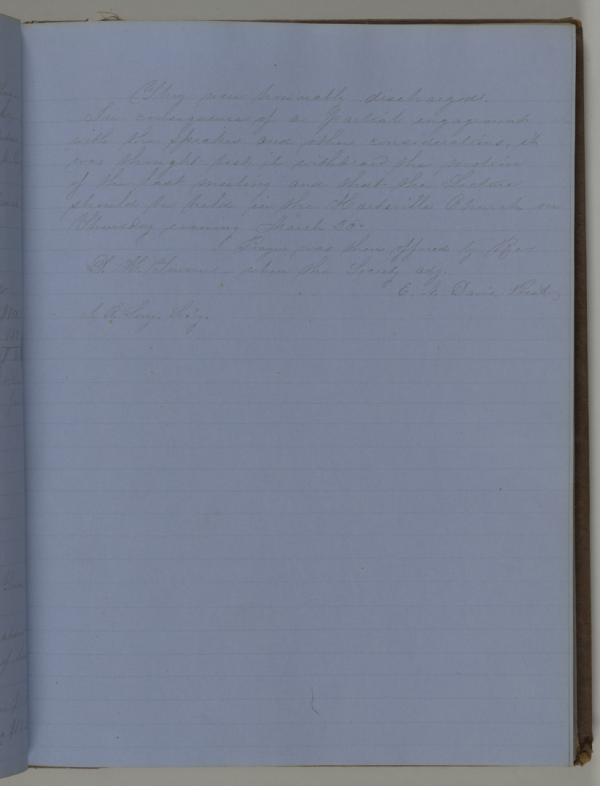 They were honorably discharged.
In consequence of a partial engagement
with the Speaker and other considerations, it
was thought best to withdraw the motion
of the last meeting and that the Lecture
should be held in the Hartsville Church on
Thursday evening March 30
Prayer was then offered by
D. K. when the Society adj.
C. Davis Prest.
Secy.